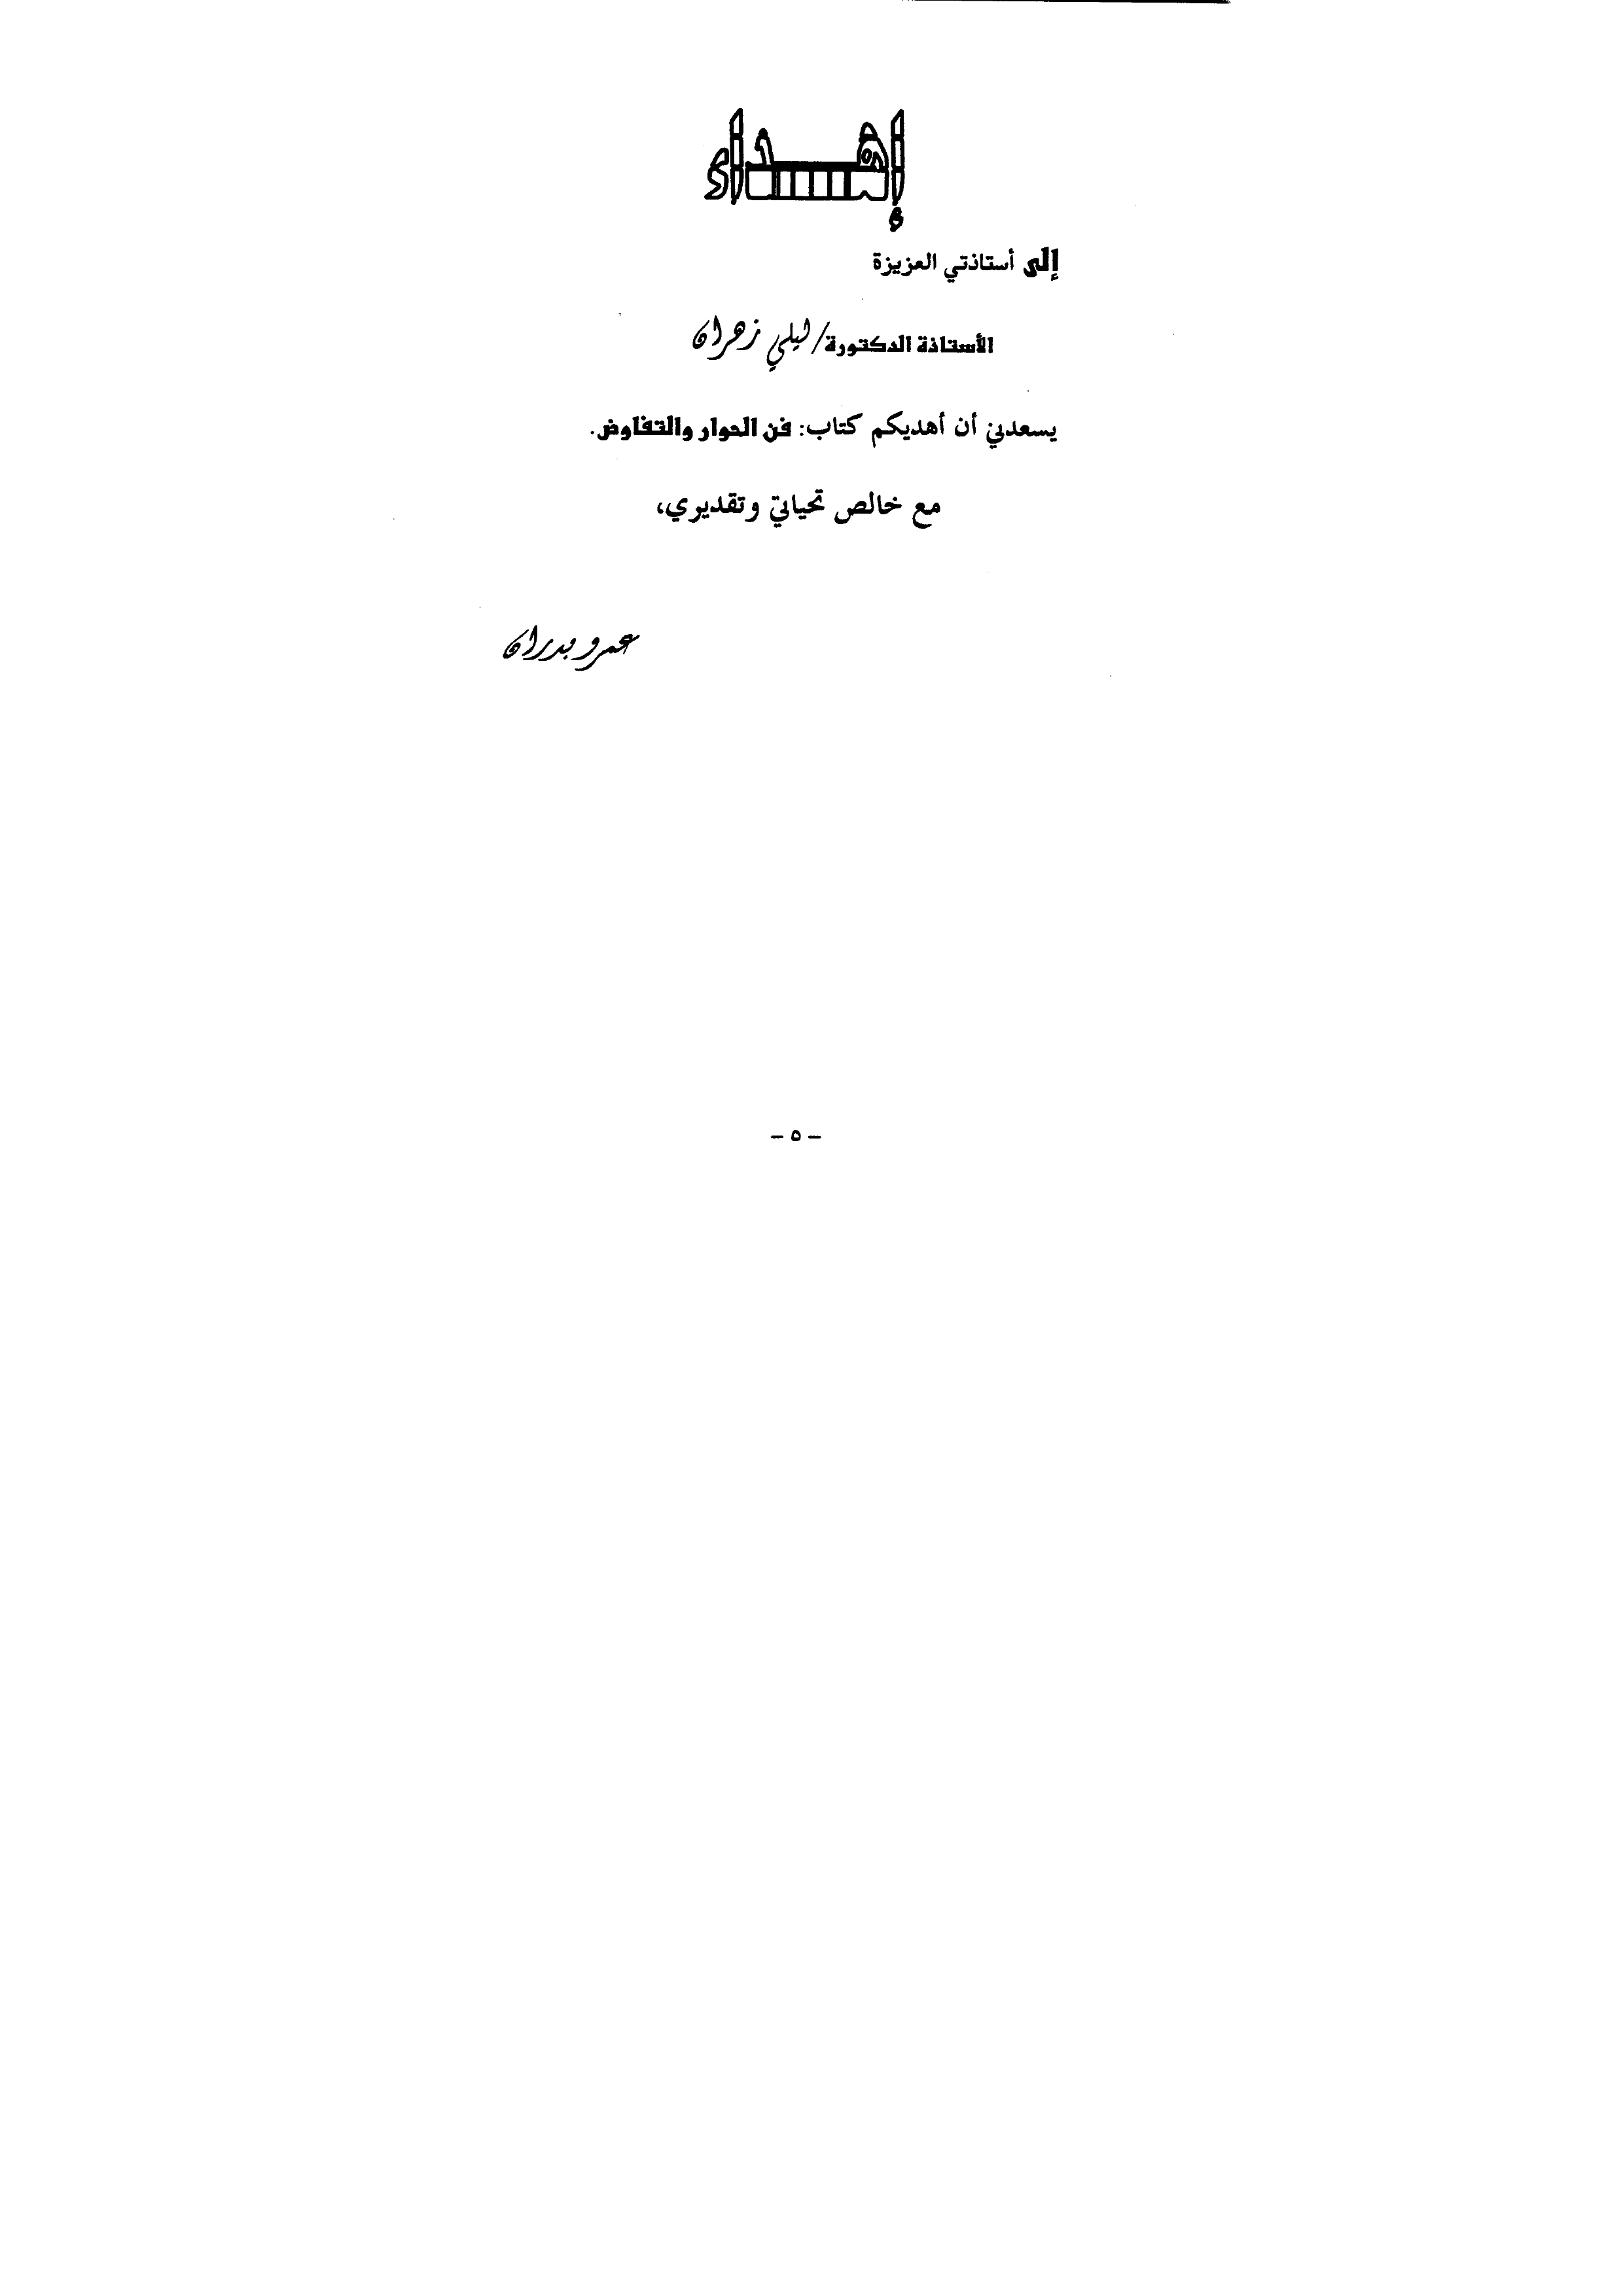 إهـــداء
إلى أستاذتي العزيزة
الأستاذة الدكتورة/ ليلي زهران
يسعدني أن أهديكم كتاب: فن الحوار والتفاوض.
مع خالص تحياتي وتقديري،
عمرو بدران
– ٥ –